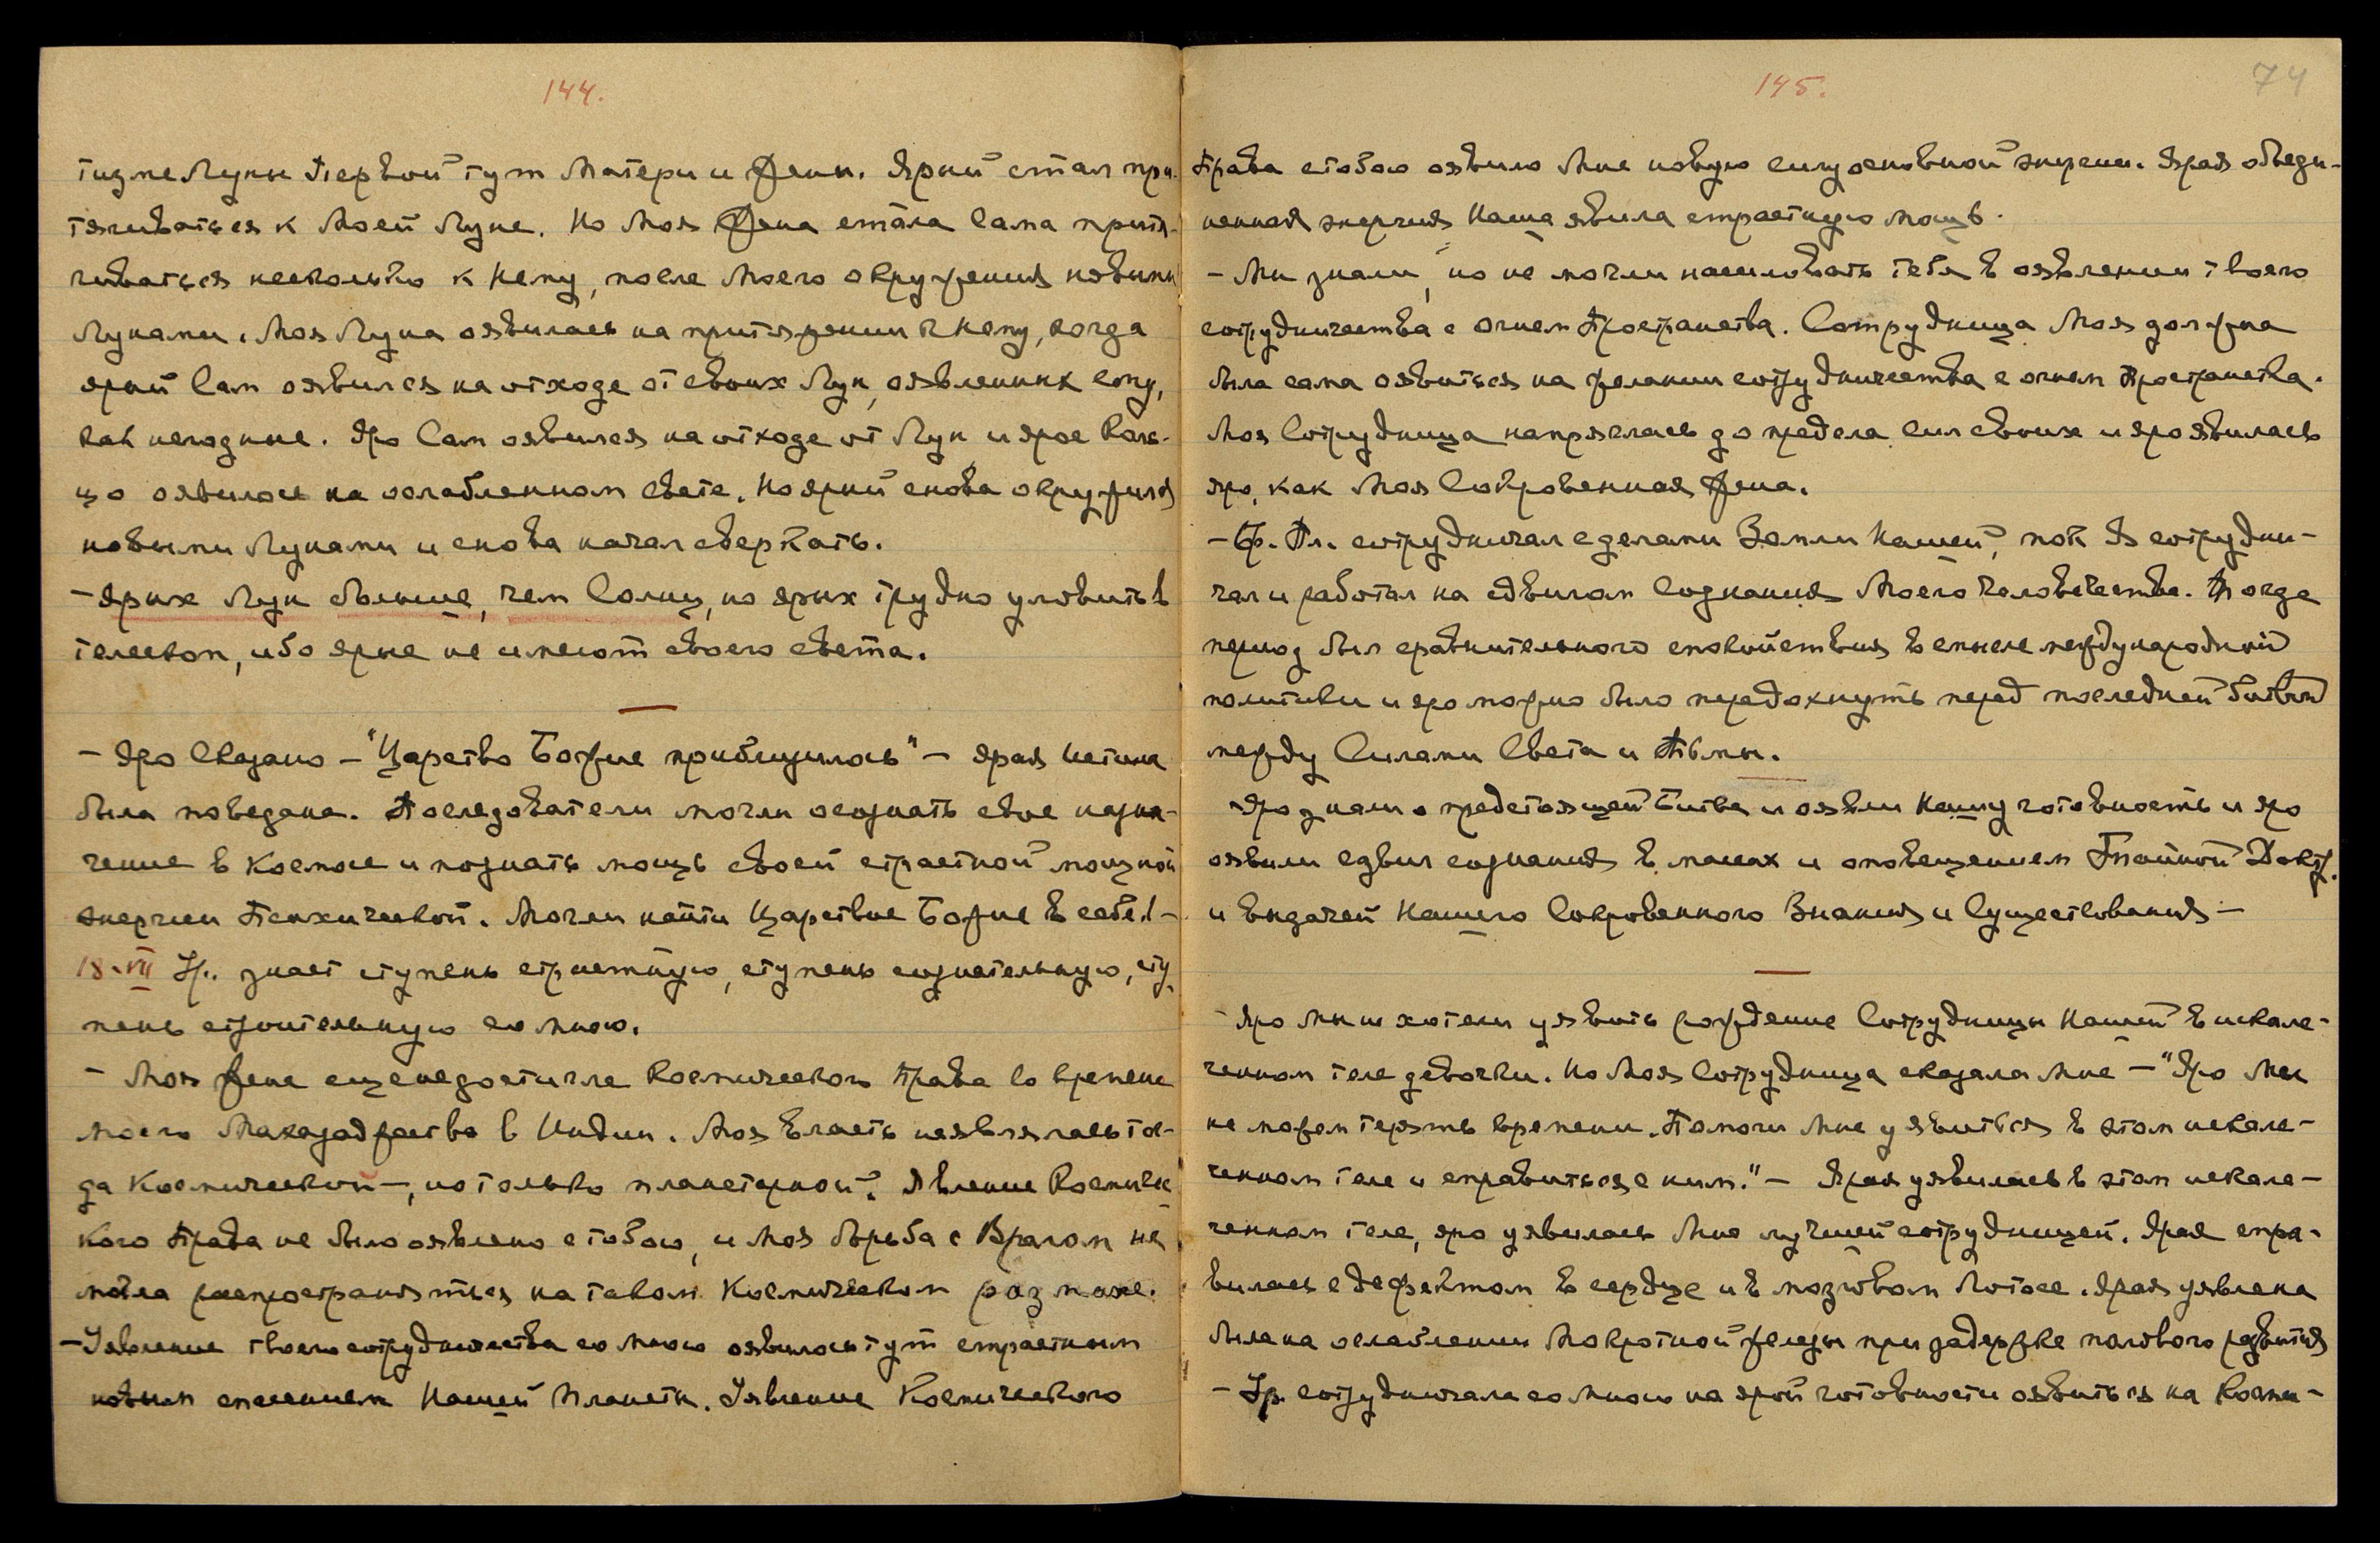 144.
тизме Луны Первой тут Матери и Жены. Ярый стал при-
тягиваться к Моей Луне. Но Моя Жена стала сама притя-
гиваться несколько к Нему, после Моего окружения новыми
Лунами. Моя Луна оявилась на притяжении к Нему, когда
ярый Сам оявился на отходе от своих Лун, оявленных ему,
как негодные. Яро Сам оявился на отходе от Лун и ярое Коль-
цо оявилось на ослабленном свете. Но ярый снова окружился
новыми Лунами и снова начал сверкать.
- Ярых Лун больше, чем Солнц, но ярых трудно уловить в
телескоп, ибо ярые не имеют своего света.
- Яро Сказано - "Царство Божие приблизилось" - ярая Истина
была поведана. Последователи могли осознать свое назна-
чение в Космосе и познать мощь своей страстной мощной
энергии Психической. Могли найти Царствие Божие в себе! -
18-VII Ур. знает ступень страстную, ступень сознательную, сту-
пень строительную со мною.
- Моя Жена еще не достигла Космического Права во времена
моего Махараджества в Индии. Моя власть не являлась тог-
да Космической -, но только планетарной. Явление Космичес-
кого Права не было оявлено с тобою, и Моя борьба с Врагом не
могла распространяться на таком Космическом размахе.
- Уявление твоего сотрудничества со мною оявилось тут страстным
новым спасением Нашей Планеты. Уявление Космического
145.
74
Права с тобою оявило Мне новую силу основной энергии. Ярая объеди-
ненная энергия Наша явила страстную мощь.
- Мы знали, но не могли насиловать тебя в оявлении твоего
сотрудничества с огнем Пространства. Сотрудница Моя должна
была сама оявиться на желании сотрудничества с огнем Пространства.
Моя Сотрудница напряглась до предела сил своих и яро явилась
яро, как Моя Сокровенная Жена.
- Бр. Пл. сотрудничал с делами Земли Нашей, пок Я сотрудни-
чал и работал на сдвигом сознания Моего Человечества. Тогда
период был сравнительного спокойствия в смысле международной
политики и яро можно было передохнуть перед последней Битвой
между Силами Света и Тьмы.
Яро знали о предстоящей Битве и оявили Нашу готовность и яро
оявили сдвиг сознания в массах и оповещением Тайной Доктр.
и выдачей Нашего Сокровенного Знания и Существования -
- Яро Мы не хотели уявить рождение Сотрудницы Нашей в искале-
ченном теле девочки. Но Моя Сотрудница сказала Мне - "Яро Мы
не можем терять времени. Помоги Мне уявиться в этом искале-
ченном теле и справиться с ним." - Ярая уявилась в этом искале-
ченном теле, яро уявилась Мне лучшей сотрудницей. Ярая спра-
вилась с дефектом в сердце и в мозговом Лотосе. Ярая уявлена
была на ослаблении Мокротной железы при задержке полового развития
- Ур. сотрудничала со мною на ярой готовности оявиться на Косми-